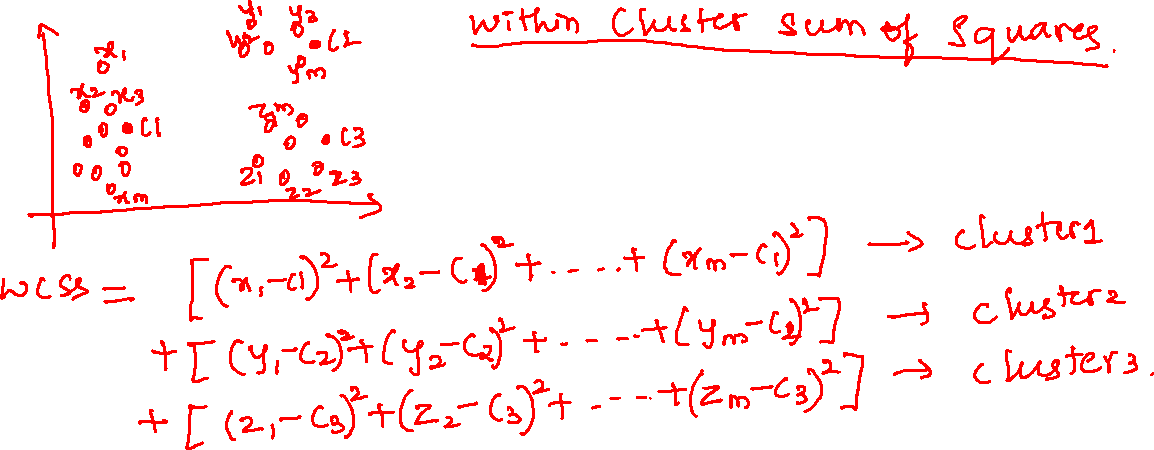 within Cluster sum of Squares.
x1
x2 x3
C1
xm
y1 y2
ym
zm
C3
z1 z2 z3
WCSS = [(x1-C1)²+(x2-C1)²+-....+(xm-C1)²] → cluster1
+[(y1-C2)²+(y2-C2)²+-...-+(ym-C2)²] → cluster2
+[(z1-C3)²+(z2-C3)²+----+(zm-C3)²] → cluster3.